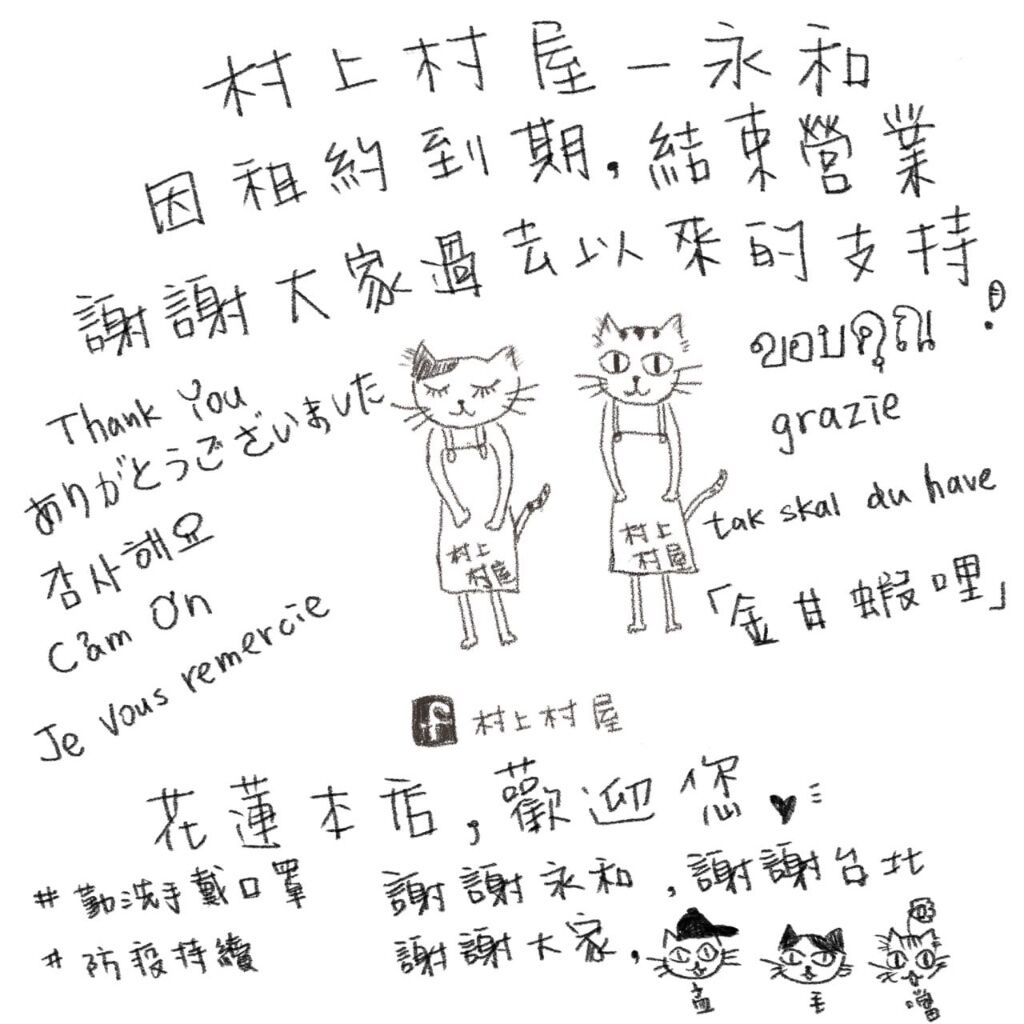 村上村屋－永和
因租約到期，結束營業
謝謝大家過去以來的支持！
Thank You
ありがとうございました
감사해요
Cảm Ơn
Je vous remercie
ขอบคุณ
grazie
tak skal du have
「金甘蝦哩」
村上
村屋
村上
村屋
f 村上村屋
花蓮本店，歡迎您
#勤洗手戴口罩
#防疫持續
謝謝永和，謝謝台北
謝謝大家，
毛
嚕